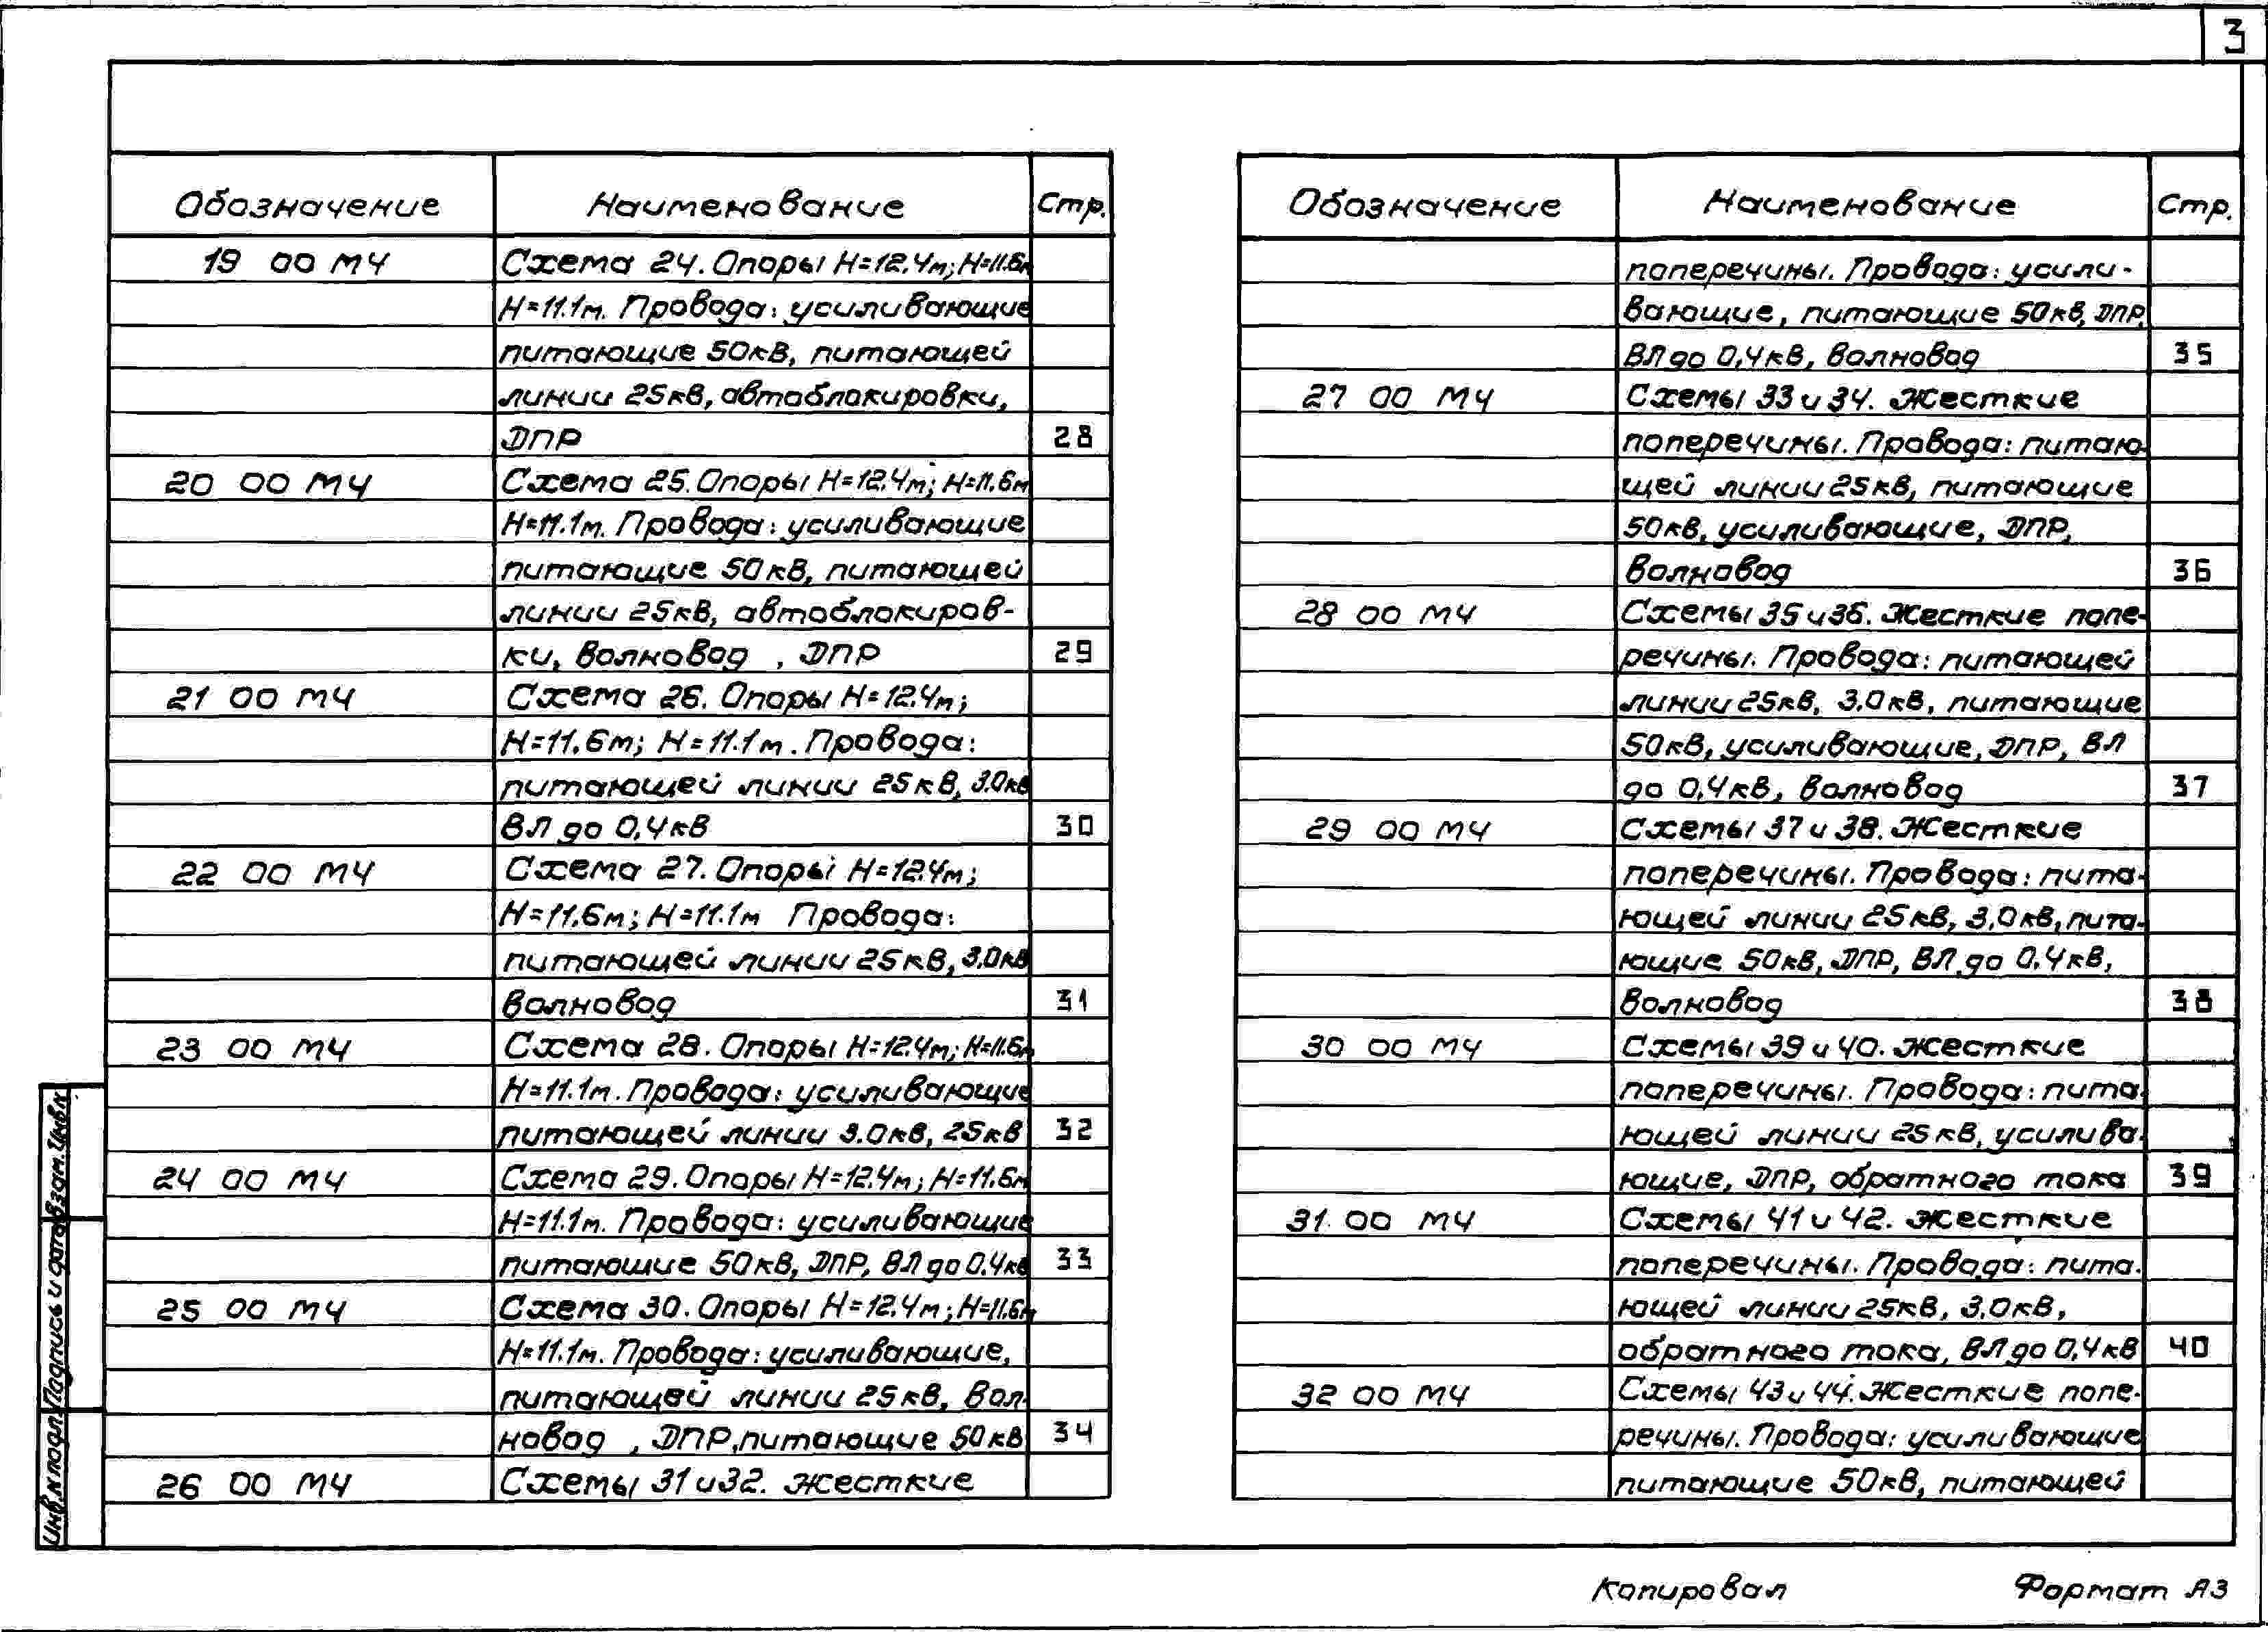 3
Обозначение Наименование Стр.
19 00 МЧ Схема 24. Опоры Н=12.4м; Н=11.6м
Н=11.1м. Провода: усиливающие
питающие 50кВ, питающей
линии 25кВ, автоблокировки,
ДПР 28
20 00 МЧ Схема 25. Опоры Н=12.4м; Н=11.6м
Н=11.1м. Провода: усиливающие
питающие 50кВ, питающей
линии 25кВ, автоблокиров-
ки, волновод , ДПР 29
21 00 МЧ Схема 26. Опоры Н=12.4м;
Н=11.6м; Н=11.1м. Провода:
питающей линии 25кВ, 3.0кВ
ВЛ до 0,4кВ 30
22 00 МЧ Схема 27. Опоры Н=12.4м;
Н=11.6м; Н=11.1м Провода:
питающей линии 25кВ, 3.0кВ
волновод 31
23 00 МЧ Схема 28. Опоры Н=12.4м; Н=11.6м
Н=11.1м. Провода: усиливающие
питающей линии 3.0кВ, 25кВ 32
24 00 МЧ Схема 29. Опоры Н=12.4м; Н=11.6м
Н=11.1м. Провода: усиливающие
питающие 50кВ, ДПР, ВЛ до 0.4кВ 33
25 00 МЧ Схема 30. Опоры Н=12.4м; Н=11.6м
Н=11.1м. Провода: усиливающие,
питающей линии 25кВ, Вол-
новод , ДПР, питающие 50кВ 34
26 00 МЧ Схемы 31 и 32. Жесткие
Обозначение Наименование Стр.
поперечины. Провода: усили-
вающие, питающие 50кВ, ДПР,
ВЛ до 0,4кВ, волновод 35
27 00 МЧ Схемы 33 и 34. Жесткие
поперечины. Провода: питаю-
щей линии 25кВ, питающие
50кВ, усиливающие, ДПР,
Волновод 36
28 00 МЧ Схемы 35 и 36. Жесткие попе-
речины. Провода: питающей
линии 25кВ, 3.0кВ, питающие
50кВ, усиливающие, ДПР, ВЛ
до 0,4кВ, волновод 37
29 00 МЧ Схемы 37 и 38. Жесткие
поперечины. Провода: пита-
ющей линии 25кВ, 3.0кВ, пита-
ющие 50кВ, ДПР, ВЛ до 0.4кВ,
волновод 38
30 00 МЧ Схемы 39 и 40. Жесткие
поперечины. Провода: пита-
ющей линии 25кВ, усилива-
ющие, ДПР, обратного тока 39
31 00 МЧ Схемы 41 и 42. Жесткие
поперечины. Провода: пита-
ющей линии 25кВ, 3.0кВ,
обратного тока, ВЛ до 0,4кВ 40
32 00 МЧ Схемы 43 и 44. Жесткие попе-
речины. Провода: усиливающие
питающие 50кВ, питающей
Взам.Инв.N
Подпись и дата
Инв.N подл.
Копировал Формат А3